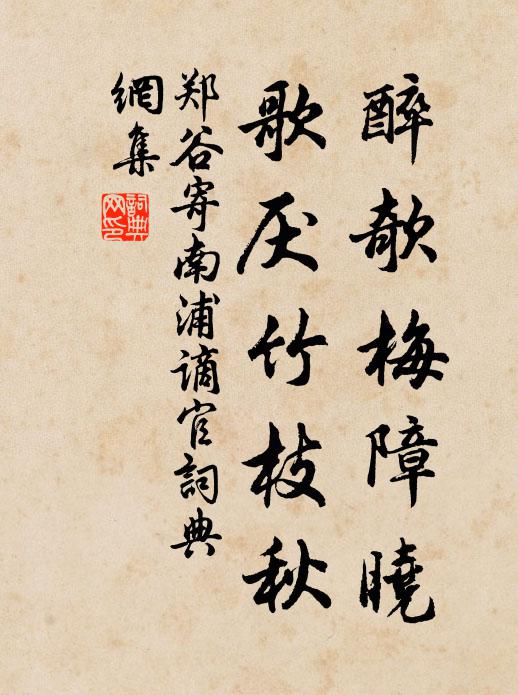 醉欹梅障曉
歌厌竹枝秋
郑谷寄南浦谪官詞典
網集
詞典
网印